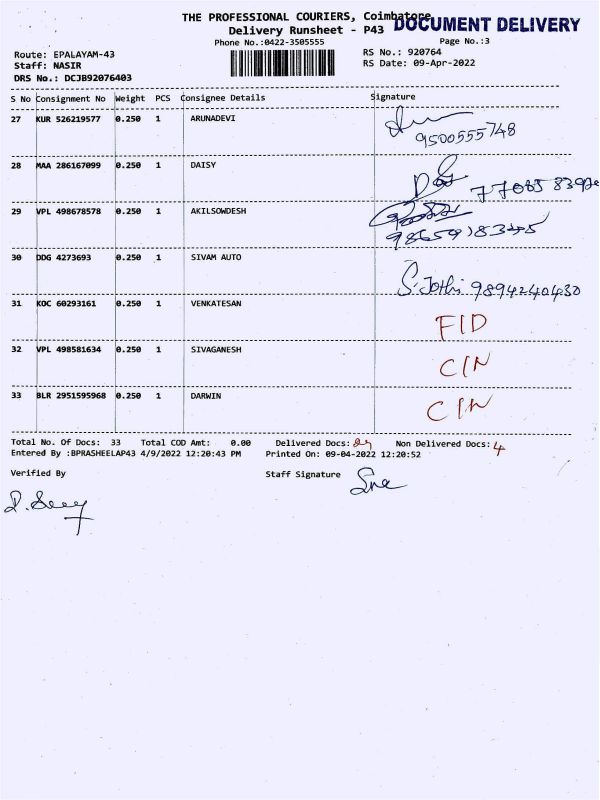 THE PROFESSIONAL COURIERS, Coimbatore
DOCUMENT DELIVERY
Delivery Runsheet - P43
Page No.:3
Phone No.:0422-3505555
Route: EPALAYAM-43
RS No.: 920764
Staff: NASIR
RS Date: 09-Apr-2022
DRS No.: DCJB92076403
S No Consignment No Weight PCS Consignee Details Signature
27 KUR 526219577 0.250 1 ARUNADEVI
9500555748
28 MAA 286167099 0.250 1 DAISY
29 VPL 498678578 0.250 1 AKILSOWDESH
30 DDG 4273693 0.250 1 SIVAM AUTO
S. Jothi 9894240430
31 KOC 60293161 0.250 1 VENKATESAN
FID
32 VPL 498581634 0.250 1 SIVAGANESH
CIN
33 BLR 2951595968 0.250 1 DARWIN
CIN
Total No. Of Docs: 33 Total COD Amt: 0.00 Delivered Docs: 29 Non Delivered Docs: 4
Entered By :BPRASHEELAP43 4/9/2022 12:20:43 PM Printed On: 09-04-2022 12:20:52
Verified By Staff Signature